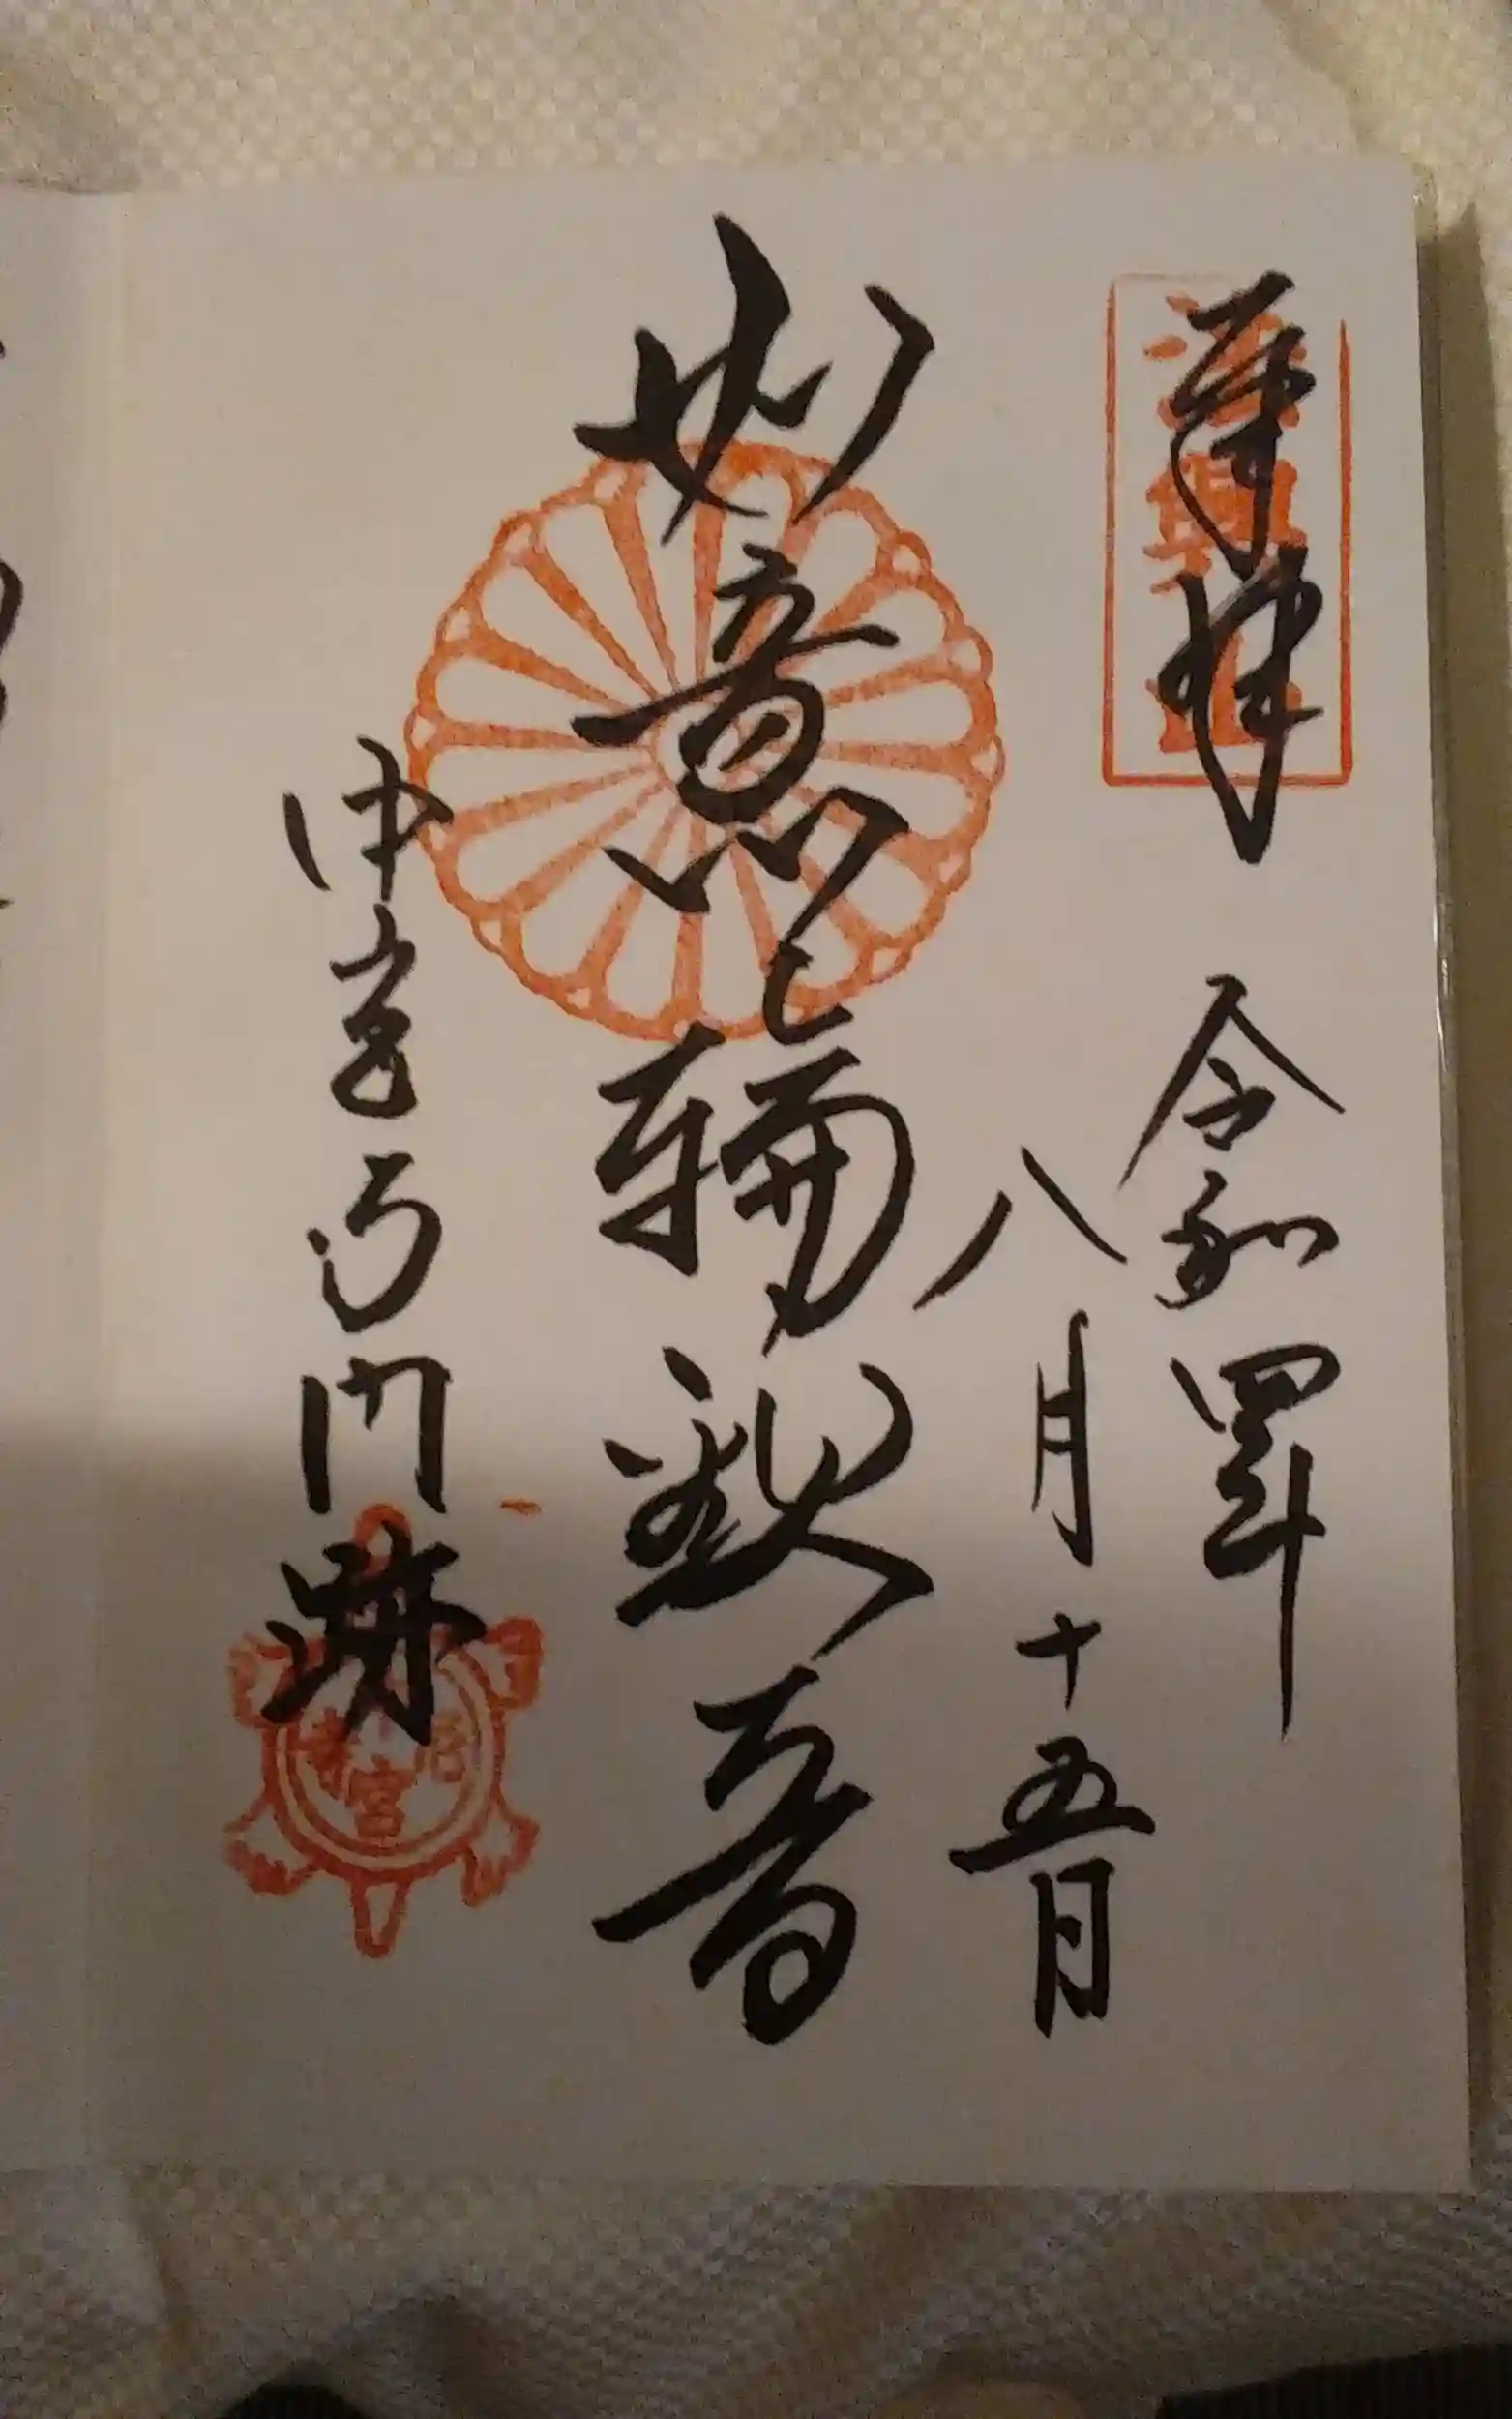 奉拝
令和四年
八月十五日
如意輪観音
中宮寺門跡
中宮寺